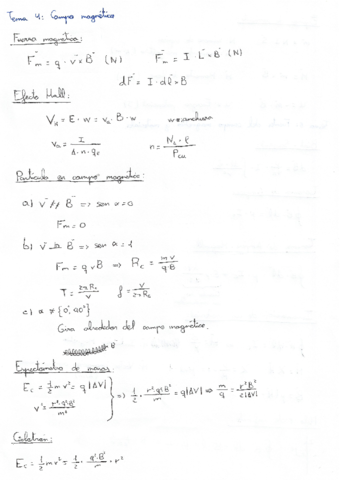 Tema 4: Campo magnético
Fuerza magnética:
F⃗m = q · v⃗ × B⃗ (N)    F⃗m = I · L⃗ × B⃗ (N)
dF⃗ = I · dl⃗ × B⃗
Efecto Hall:
V_H = E · w = v_d · B · w    w ≡ anchura
v_d = I / (A · n · q_e)    n = N_A · ρ / P_Cu
Partícula en campo magnético:
a) v⃗ // B⃗ => sen α = 0
Fm = 0
b) v⃗ ⊥ B⃗ => sen α = 1
Fm = q v B => R_c = mv / (q·B)
T = 2πR_c / v    f = v / (2πR_c)
c) α ≠ {0°, 90°}
Gira alrededor del campo magnético.
Espectrómetro de masas:
E_c = 1/2 m v² = q |ΔV|
v² = r²·q²·B² / m²
=> 1/2 · r²·q²·B² / m = q|ΔV| => m/q = r²B² / 2|ΔV|
Ciclotrón:
E_c = 1/2 m v² = 1/2 · q²·B² / m · r²